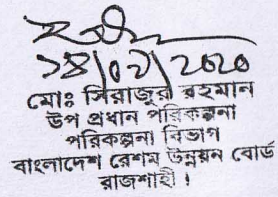 ১৪/০৭/2020
মোঃ সিরাজুর রহমান
উপ প্রধান পরিকল্পনা
পরিকল্পনা বিভাগ
বাংলাদেশ রেশম উন্নয়ন বোর্ড
রাজশাহী।